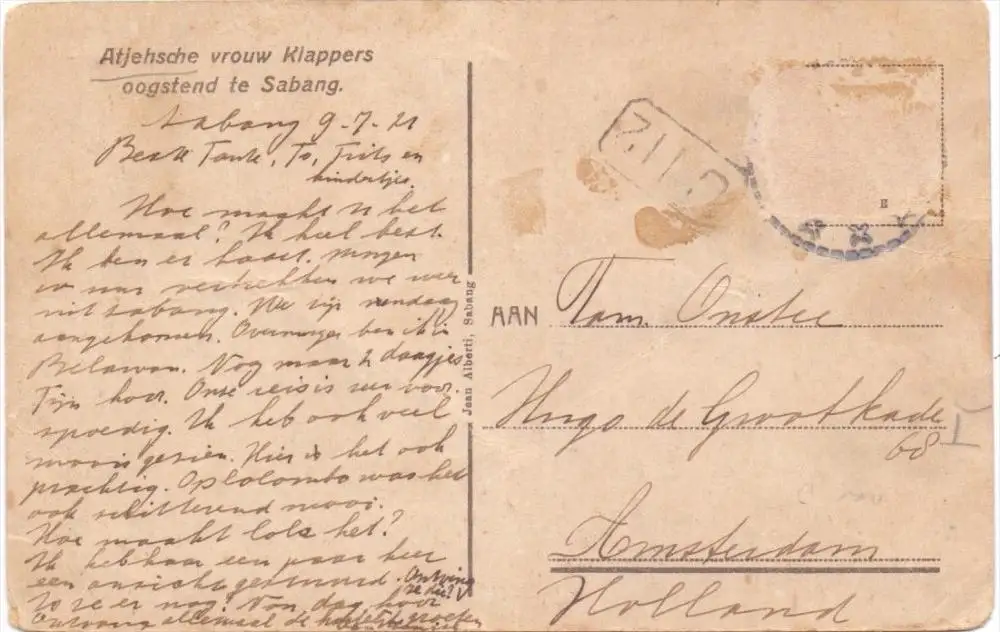 Atjehsche vrouw Klappers
oogstend te Sabang.
Sabang 9-7-21
Beste Tante, To, Frits en
kindertjes.
Hoe maakt u het
allemaal? Ik heel best.
Ik ben er haast. Morgen
vertrekken we weer
uit Sabang. We zijn vandaag
aangekomen. Overmorgen ben ik in
Belawan. Nog maar 2 daagjes
Fijn hoor. Onze reis is zeer voor-
spoedig. Ik heb ook veel
moois gezien. Hier is het ook
prachtig. Op Colombo was het
ook schitterend mooi.
Hoe maakt Lols het?
Ik heb haar een paar keer
een ansicht gestuurd. Ontving
ze die?
ze er nog? Nou dag hoor
Ontvang allemaal de groeten
Jean Alberti, Sabang
AAN Fam. Onstee
Hugo de Grootkade
68
Amsterdam
Holland
E